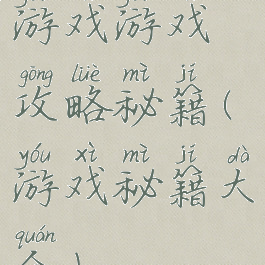 游戏游戏
gōng lüè mì jí
攻略秘籍(
yóu xì mì jí dà
游戏秘籍大
quán
全)